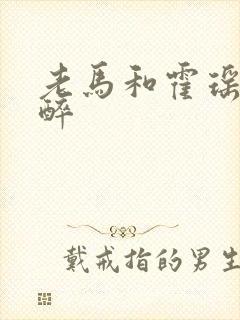 老馬和霍瑶
醉
戴戒指的男生